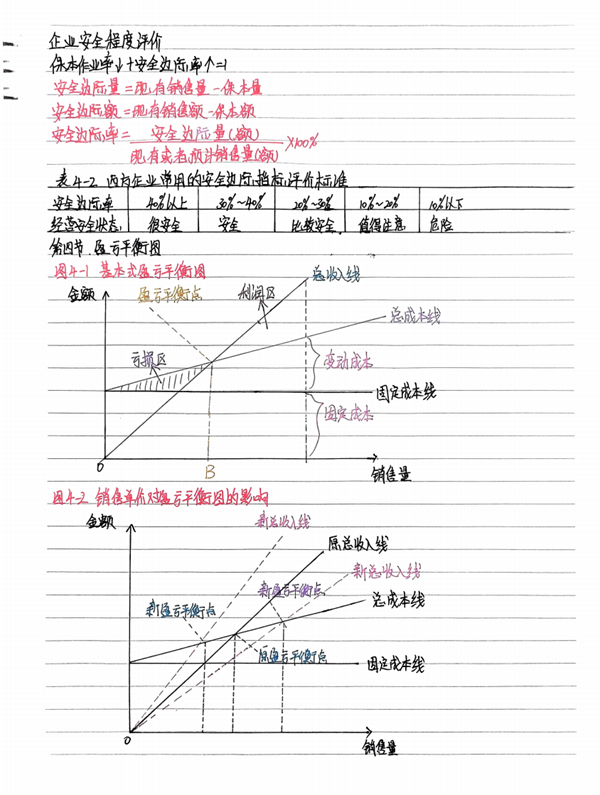 企业安全程度评价
保本作业率↓+安全边际率个=1
安全边际量=现有销售量-保本量
安全边际额=现有销售额-保本额
安全边际率=安全边际量(额)/现有或者预计销售量(额)×100%
表4-2 西方企业常用的安全边际指标评价标准
安全边际率 40%以上 30%~40% 20%~30% 10%~20% 10%以下
经营安全状态 很安全 安全 比较安全 值得注意 危险
第四节.盈亏平衡图
图4-1 基本式盈亏平衡图
金额 盈亏平衡点 利润区 总收入线
总成本线
亏损区 变动成本
固定成本线
固定成本
0 B 销售量
图4-2 销售单价对盈亏平衡图的影响
金额 新总收入线
原总收入线
新总收入线
新盈亏平衡点
新盈亏平衡点 总成本线
原盈亏平衡点 固定成本线
0 销售量